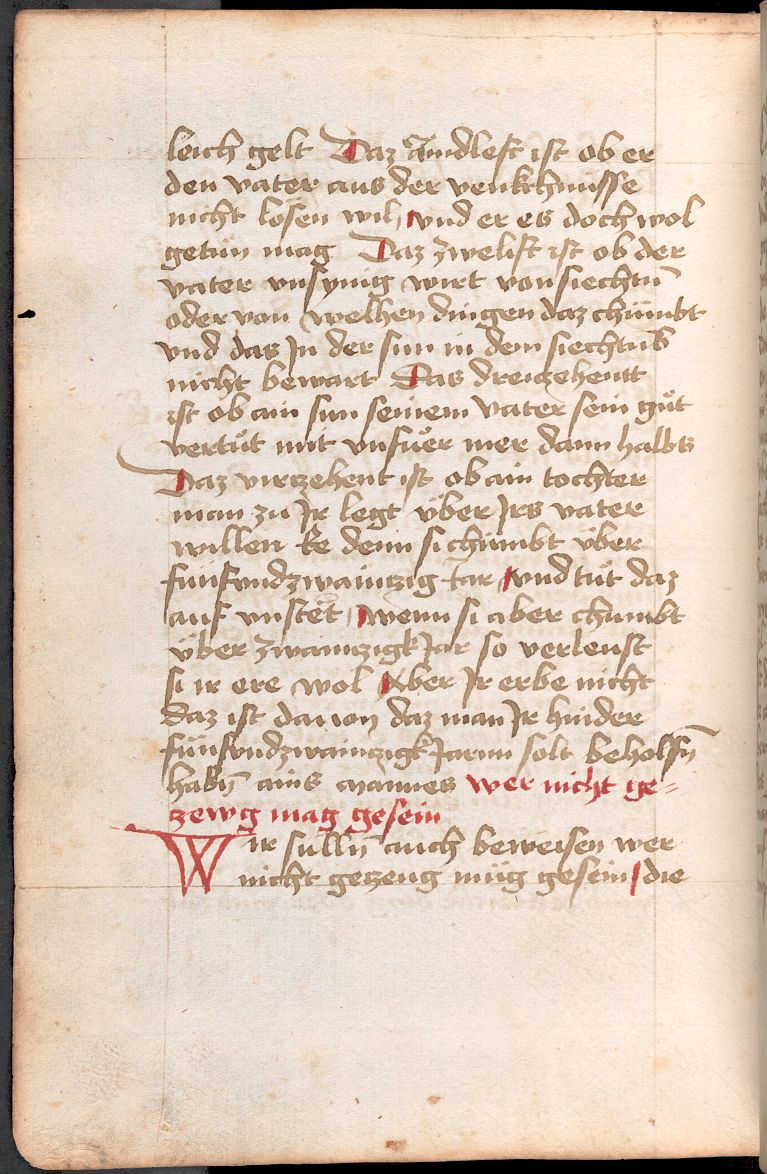 leich gelt Daz aindlest ist ob er
den vater aus der venkchnusse
nicht losen wil, vnd er es doch wol
getun mag Daz zwelift ist ob der
vater vnsynig wirt von siechtu̅
oder von welhen dingen daz chumbt
vnd das Jn der sun in dem siechtus
nicht bewart Das dreizehentt
ist ob ain sun seinem vater sein gůt
vertůt mit vnfůer mer dann halbs
Daz virzehent ist ob ain tochter
man zu Jr legt vber Jrs vater
willen Ee denn si chumbt vber
funfvndzwaintzig iar, vnd tůt daz
auf vnstet, wenn si aber chumbt
vber zwaintzigk Jar so verleust
si ir ere wol Aber Jr erbe nicht
daz ist dauon daz man Jr hinder
funfvndzwaintzigk Jarnn solt beholff̅
hab̅ ains mannes wer nicht ge-
zewg mag gesein
Wir sull̅ auch beweisen wer
nicht getzeug mug gesein, die